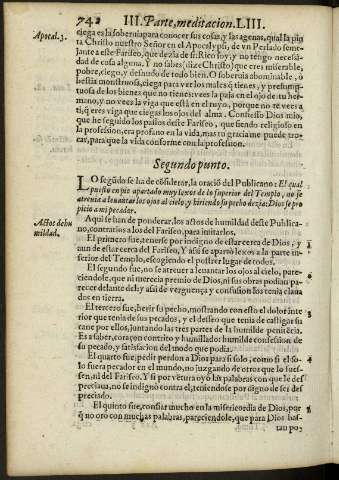 742 III. Parte, meditacion. LIII.
Apocal. 3.
ciega es la soberuia para conocer sus cosas, y las agenas, qual la pīta
Christo nuestro Señor en el Apocalypsi, de vn Perlado seme-
jante a este Fariseo, que dezia de si: Rico soy, y no tengo necesi-
dad de cosa alguna. Y no sabes (dize Christo) que eres miserable,
pobre, ciego, y desnudo de todo bien. O soberuia abominable, o
bestia monstruosa, ciega para ver los males q̃ tienes, y presump-
tuosa de los bienes que no tienes: vees la paja en el ojo de tu her-
mano, y no vees la viga que està en el tuyo, porque no te vees a
ti, q̃ eres viga que ciegas los ojos del alma. Confiesso Dios mio,
que he seguido los passos deste Fariseo, que siendo religioso en
la profession, era profano en la vida, mas tu gracia me puede tro-
car, para que la vida conforme con la profession.
Segundo punto.
LO segũdo se ha de cõsiderar, la oraciõ del Publicano: El qual
puesto en pie apartado muy lexos de lo superior del Templo, no se
atreuia a leuantar los ojos al cielo, y hiriendo su pecho dezia: Dios se pro-
picio a mi pecador.
Actos de hu
mildad.
Aqui se han de ponderar, los actos de humildad deste Publica-
no, contrarios a los del Fariseo, para imitarlos.
El primero fue, tenerse por indigno de estar cerca de Dios, y 1
aun de estar cerca del Fariseo, Y assi se apartò lexos a la parte in-
ferior del Templo, escogiendo el postrer lugar de todos.
El segundo fue, no se atreuer a leuantar los ojos al cielo, pare- 2
ciendole, que ni merecia premio de Dios, ni sus obras podian pa-
recer delante del: y assi de verguença y confusion los tenia claua
dos en tierra.
El tercero fue, herir su pecho, mostrando con esto el dolor inte 3
rior que tenia de sus pecados, y el desseo que tenia de castigar su
carne por ellos, juntando las tres partes de la humilde penitẽcia.
Es a saber, coraçon contrito y humillado: humilde confession de
su pecado, y satisfacion del modo que podia.
El quarto fue, pedir perdon a Dios para si solo, como si el so- 4
lo fuera pecador en el mundo, no juzgando de otros que lo fues-
sen, ni del Fariseo. Y si por vẽtura oyò las palabras con que le des
preciaua, no se indignò contra el, teniendose por digno de ser des-
preciado.
El quinto fue, confiar mucho en la misericordia de Dios, por 5
q̃ no orò con muchas palabras, pareciendole, que para Dios bas-
tan po-